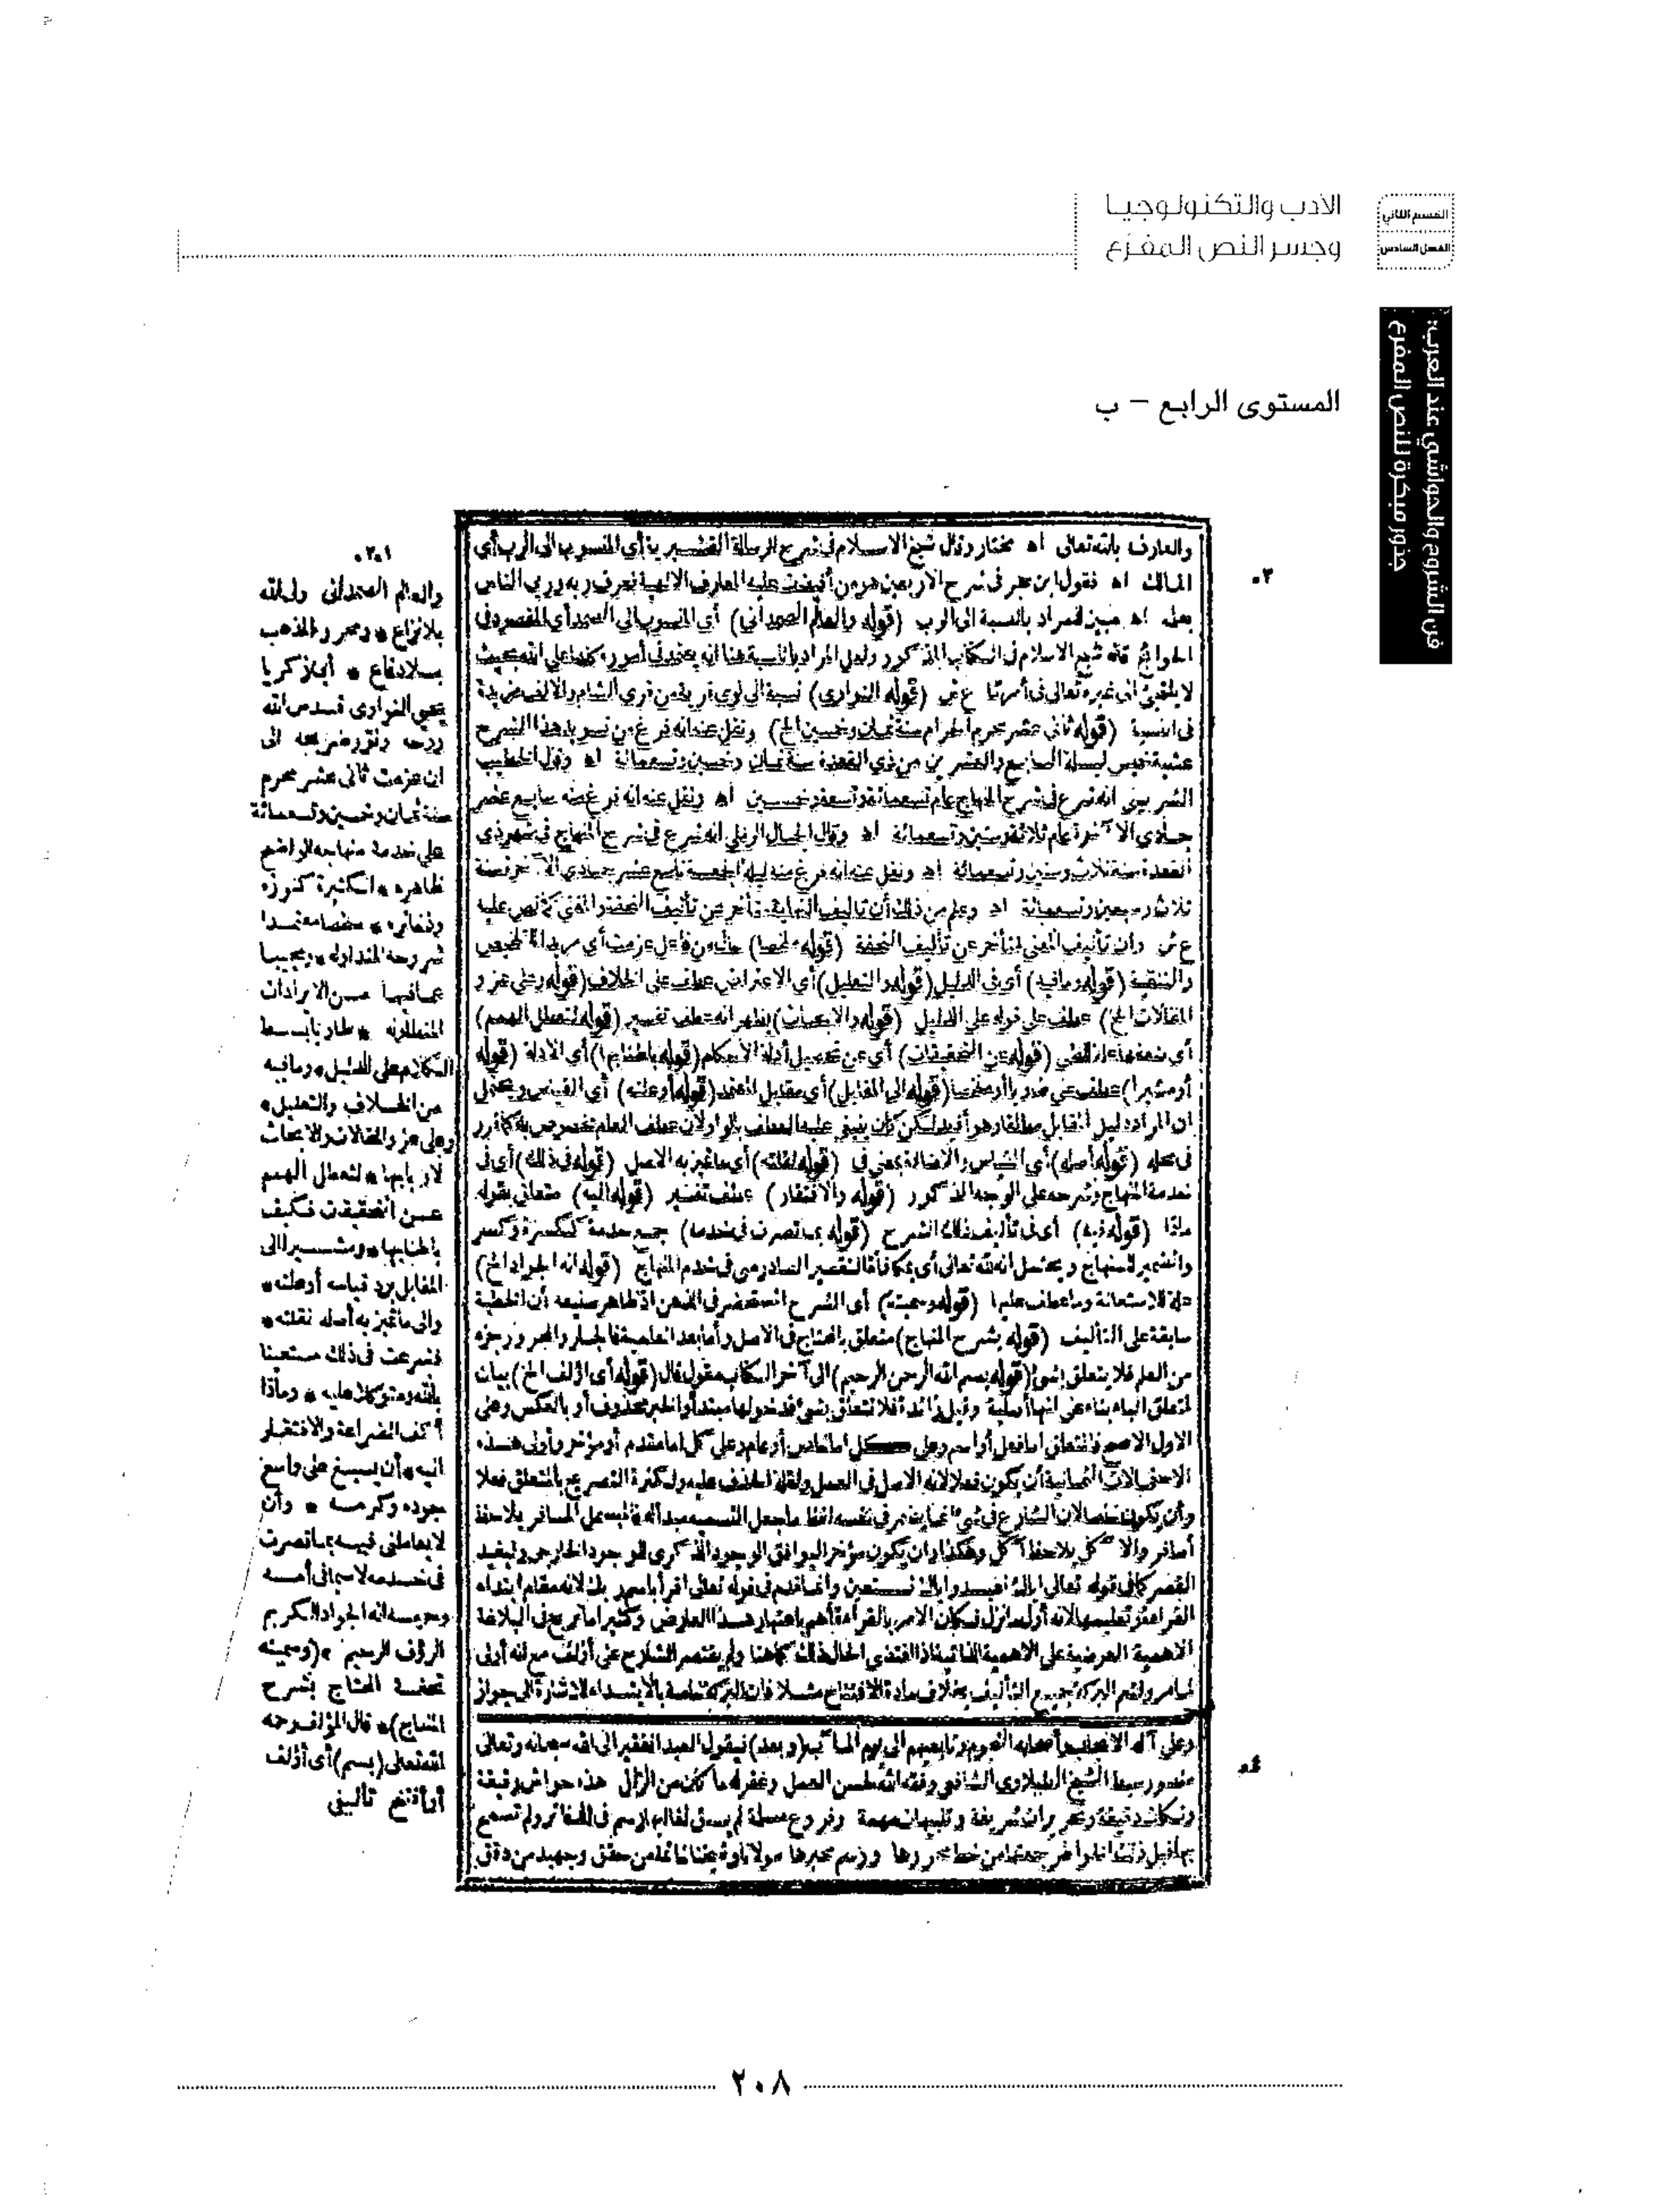 القسم الثاني
الفصل السادس
الأدب والتكنولوجيا
وجسر النص المفرّع
فن الشروح والحواشي عند العرب:
جذور مبكرة للنص المفرع
المستوى الرابع – ب
٣٠
والعارف بالله تعالى اه مختار وقال شيخ الاسلام فى شرح الرسالة القشيرية أي المنسوب الى الرب أي
المالك اه فقول ابن حجر فى شرح الاربعين هو من أفيضت عليه المعارف الالهية فعرف ربه وربى الناس
بعلمه اه مبين للمراد بالنسبة الى الرب (قوله والعالم الصمدانى) أي المنسوب الى الصمد أي المقصود فى
الحوائج قاله شيخ الاسلام فى الكتاب المذكور ولعل المراد بالنسبة هنا انه يعتمد فى أموره كلها على الله بحيث
لا يلتجئ الى غيره تعالى فى أمر ما ع ش (قوله النواوى) نسبة الى نوى قرية من قرى الشام والالف مزيدة
فى النسبة (قوله ثانى عشر محرم الحرام سنة ثمان وخمسين الخ) ونقل عنه انه فرغ من تسويد هذا الشرح
عشية خميس ليلة السابع والعشرين من ذى القعدة سنة ثمان وخمسين وتسعمائة اه وقول الخطيب
الشربينى انه شرع فى شرح المنهاج عام تسعمائة وتسعة وخمسين اه ونقل عنه انه فرغ منه سابع عشر
جمادى الآخرة عام ثلاثة وستين وتسعمائة اه وقال الجمال الرملى انه شرع فى شرح المنهاج فى شهر ذى
القعدة سنة ثلاث وستين وتسعمائة اه ونقل عنه انه فرغ منه ليلة الجمعة تاسع عشر جمادى الآخرة سنة
ثلاث وسبعين وتسعمائة اه وعلم من ذلك أن تأليف النهاية متأخر عن تأليف التحفة والمغنى كما نص عليه
ع ش وأن تأليف المغنى متأخر عن تأليف التحفة (قوله ملخصا) حال من فاعل عزمت أي مريدا التلخيص
والتنقيح (قوله وما فيه) أي فى الدليل (قوله والتعليل) أي الاعتراض عطف على الخلاف (قوله وعلى عزو
المقالات الخ) عطف على قوله على الدليل (قوله والابحاث) يظهر انه عطف تفسير (قوله لتعطل الهمم)
(قوله عن التحقيقات) أي عن تحصيل أدلة الاحكام (قوله باطنابها) أي الادلة (قوله
أو مشيرا) عطف على (قوله الى المقابل) أي مقابل المعتمد (قوله أو علته) أي القياس ويحتمل
فى محله (قوله أصله) (قوله لقلته) أي ما تميز به الاصل (قوله فى ذلك) أي فى
خدمة المنهاج وشرحه على الوجه المذكور (قوله والافتقار) عطف تفسير (قوله اليه) متعلق بقوله
مادا (قوله فيه) أي فى تأليف ذلك الشرح (قوله بما قصرت فى خدمه) جمع خدمة ككسرة وكسر
والضمير للمنهاج ويحتمل انه لله تعالى أي مكافأة التقصير الصادر منى فى خدم المنهاج (قوله انه الجواد الخ)
علة للاستعانة وما عطف عليها (قوله وسميته) أي الشرح المستحضر فى الذهن اذ ظاهر صنيعه أن الخطبة
سابقة على التأليف (قوله بشرح المنهاج) متعلق بالمحتاج فى الاصل وأما بعد العلمية فالجار والمجرور جزء
من العلم فلا يتعلق بشئ (قوله بسم الله الرحمن الرحيم) الى آخر الكتاب مقول قال (قوله أي أؤلف الخ) بيان
لمتعلق الباء بناء على انها أصلية وقيل زائدة فلا تتعلق بشئ فمدخولها مبتدأ والخبر محذوف أو بالعكس وعلى
الاول الاصح فالمتعلق اما فعل أو اسم وعلى كل اما خاص أو عام وعلى كل اما مقدم أو مؤخر وأولى هذه
الاحتمالات الثمانية أن يكون فعلا لانه الاصل فى العمل ولقلة الحذف عليه ولكثرة التصريح بالمتعلق فعلا
وأن يكون خاصا لان الشارع فى شئ انما يضمر فى نفسه لفظ ما جعل التسمية مبدأ له فالمبسمل المسافر يلاحظ
أسافر والآكل يلاحظ آكل وهكذا وان يكون مؤخرا ليوافق الوجود الذكرى الوجود الخارجى وليفيد
القصر كما فى قوله تعالى اياك نعبد واياك نستعين وانما قدم فى قوله تعالى اقرأ باسم ربك لانه مقام ابتداء
القراءة وتعليمها لانه أول ما نزل فكان الامر بالقراءة أهم باعتبار هذا العارض وكثيرا ما ترجح فى البلاغة
الاهمية العرضية على الاهمية الذاتية اذا اقتضى الحال ذلك كما هنا ولم يقتصر الشارح على أؤلف مع انه أولى
لما مر ولتعم البركة جميع التأليف بخلاف مادة الافتتاح مثلا فان البركة خاصة بالابتداء للاشارة الى جواز
٤٠
وعلى آله الانجاب وأصحابه النجوم وتابعيهم الى يوم المآب (وبعد) فيقول العبد الفقير الى الله سبحانه وتعالى
منصور سبط الشيخ الطبلاوى الشافعى وفقه الله لحسن العمل وغفر له ما كان من الزلل هذه حواش رقيقة
ونكات دقيقة وتحريرات شريفة وتنبيهات مهمة وفروع جملة لم يسبق لغالبها رسم فى الدفاتر ولم تسمح
بها قبل ذلك الخواطر جمعتها من خط محررها ورسم محبرها مولانا وشيخنا خاتمة من حقق وجهبذ من دقق
١ـ٢٠
والعالم الصمدانى ولى الله
بلا نزاع * ومحرر المذهب
بلا دفاع * أبى زكريا
يحيى النواوى قدس الله
روحه ونور ضريحه الى
ان عزمت ثانى عشر محرم
سنة ثمان وخمسين وتسعمائة
على خدمة منهاجه الواضح
ظاهره * الكثيرة كنوزه
وذخائره * ملخصا معتمدا
شروحه المتداولة * ومجيبا
عما فيها من الايرادات
المتطاولة * طاويا بسط
الكلام على الدليل * وما فيه
من الخلاف والتعليل *
وعلى عزو المقالات والابحاث
لاربابها * لتعطل الهمم
عن التحقيقات فكيف
باطنابها * ومشيرا الى
المقابل برد قياسه أو علته *
والى ما تميز به أصله لقلته *
فشرعت فى ذلك مستعينا
بالله ومتوكلا عليه * ومادا
أكف الضراعة والافتقار
اليه * أن يسبغ على واسع
جوده وكرمه * وأن
لا يعاملنى فيه بما قصرت
فى خدمه لا سيما فى أمنه
وحرمه انه الجواد الكريم
الرؤف الرحيم * (وسميته
تحفة المحتاج بشرح
المنهاج) * قال المؤلف رحمه
الله تعالى (بسم) أى أؤلف
أو أفتتح تأليفى
٢٠٨